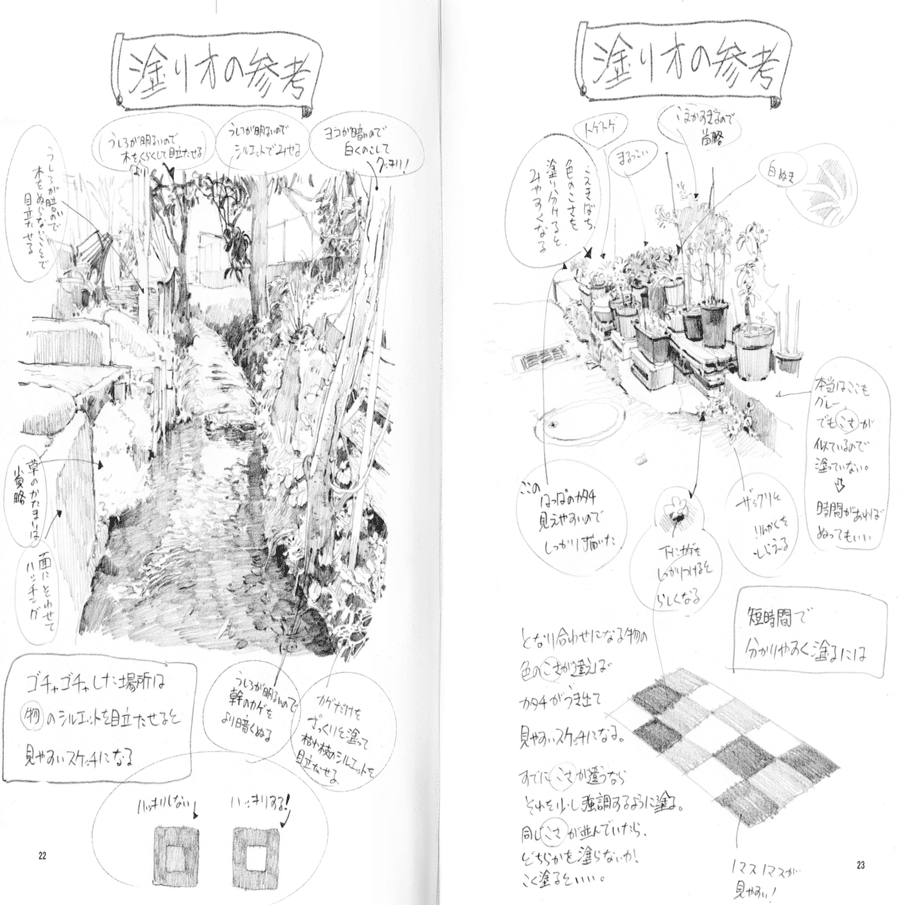 塗り方の参考
うしろが明るいので
木をくらくして目立たせる
うしろが明るいので
シルエットでみせる
ヨコが暗いので
白くのこして
クッキリ!
うしろが暗いので
木をぬらないことで
目立たせる
草のかたまりは
省略
面にそわせて
ハッチング
ゴチャゴチャした場所は
物のシルエットを目立たせると
見やすいスケッチになる
うしろが明るいので
幹のカゲを
より暗くぬる
カゲだけを
ざっくりを塗って
樹や枝のシルエットを
目立たせる
ハッキリしない
ハッキリする!
22
塗り方の参考
トゲトゲ
こまかすぎるので
省略
まるっこい
白ぬき
うえきばち
色のこさを
塗り分けると、
みやすくなる
本当はここも
グレー
でもこさが
似ているので
塗っていない。
時間があれば
ぬってもいい
ここの
はっぱのカタチ
見えやすいので
しっかり描いた
しっかりつけると
らしくなる
ザックリと
短時間で
分かりやすく塗るには
となり合わせになる物の
色のこさが違えば
カタチがうき出て
見やすいスケッチになる。
すでにこさが違うなら
それを少し強調するように塗る。
同じこさが並んでいたら、
どちらかを塗らないか!
こく塗るといい。
見やすい!
23